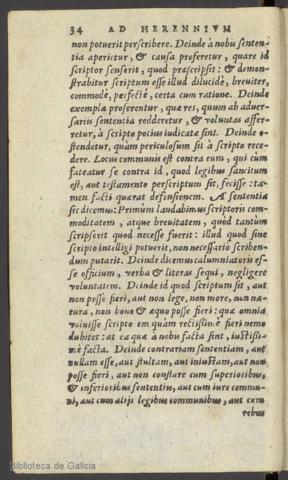 34 AD HERENNIVM
non potuerit perscribere. Deinde à nobis senten-
tia aperietur, & causa proferetur, quare id
scriptor senserit, quod præscripsit: & demon-
strabitur scriptum esse illud dilucidè, breuiter,
commodè, perfectè, certa cum ratione. Deinde
exempla proferentur, quæ res, quum ab aduer-
sariis sententia redderetur, & voluntas affer-
retur, à scripto potius iudicatæ sint. Deinde o-
stendetur, quàm periculosum sit à scripto rece-
dere. Locus communis est contra eum, qui cùm
fateatur se contra id, quod legibus sancitum
est, aut testamento perscriptum sit, fecisse: ta-
men facti quærat defensionem. A sententia
sic dicemus: Primùm laudabimus scriptoris com-
moditatem, atque breuitatem, quòd tantùm
scripserit quod necesse fuerit: illud quod sine
scripto intelligi potuerit, non necessariò scriben-
dum putarit. Deinde dicemus calumniatoris es-
se officium, verba & literas sequi, negligere
voluntatem. Deinde id quod scriptum sit, aut
non posse fieri, aut non lege, non more, non na-
tura, non bono & æquo posse fieri: quæ omnia
voluisse scriptorem quàm rectissimè fieri nemo
dubitet: at ea quæ à nobis facta sint, iustissi-
mè facta. Deinde contrariam sententiam, aut
nullam esse, aut stultam, aut iniustam, aut non
posse fieri, aut non constare cum superioribus,
& inferioribus sententiis, aut cum iure commu-
ni, aut cum aliis legibus communibus, aut cum
rebus
Biblioteca de Galicia